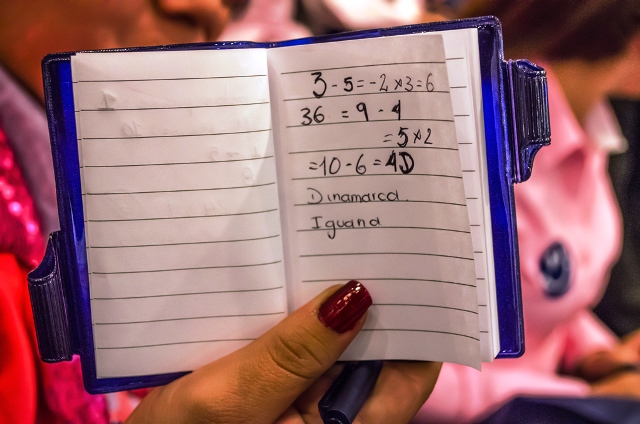 3-5=-2×3=6
36 =9-4
=5×2
=10-6=4D
Dinamarca.
Iguana